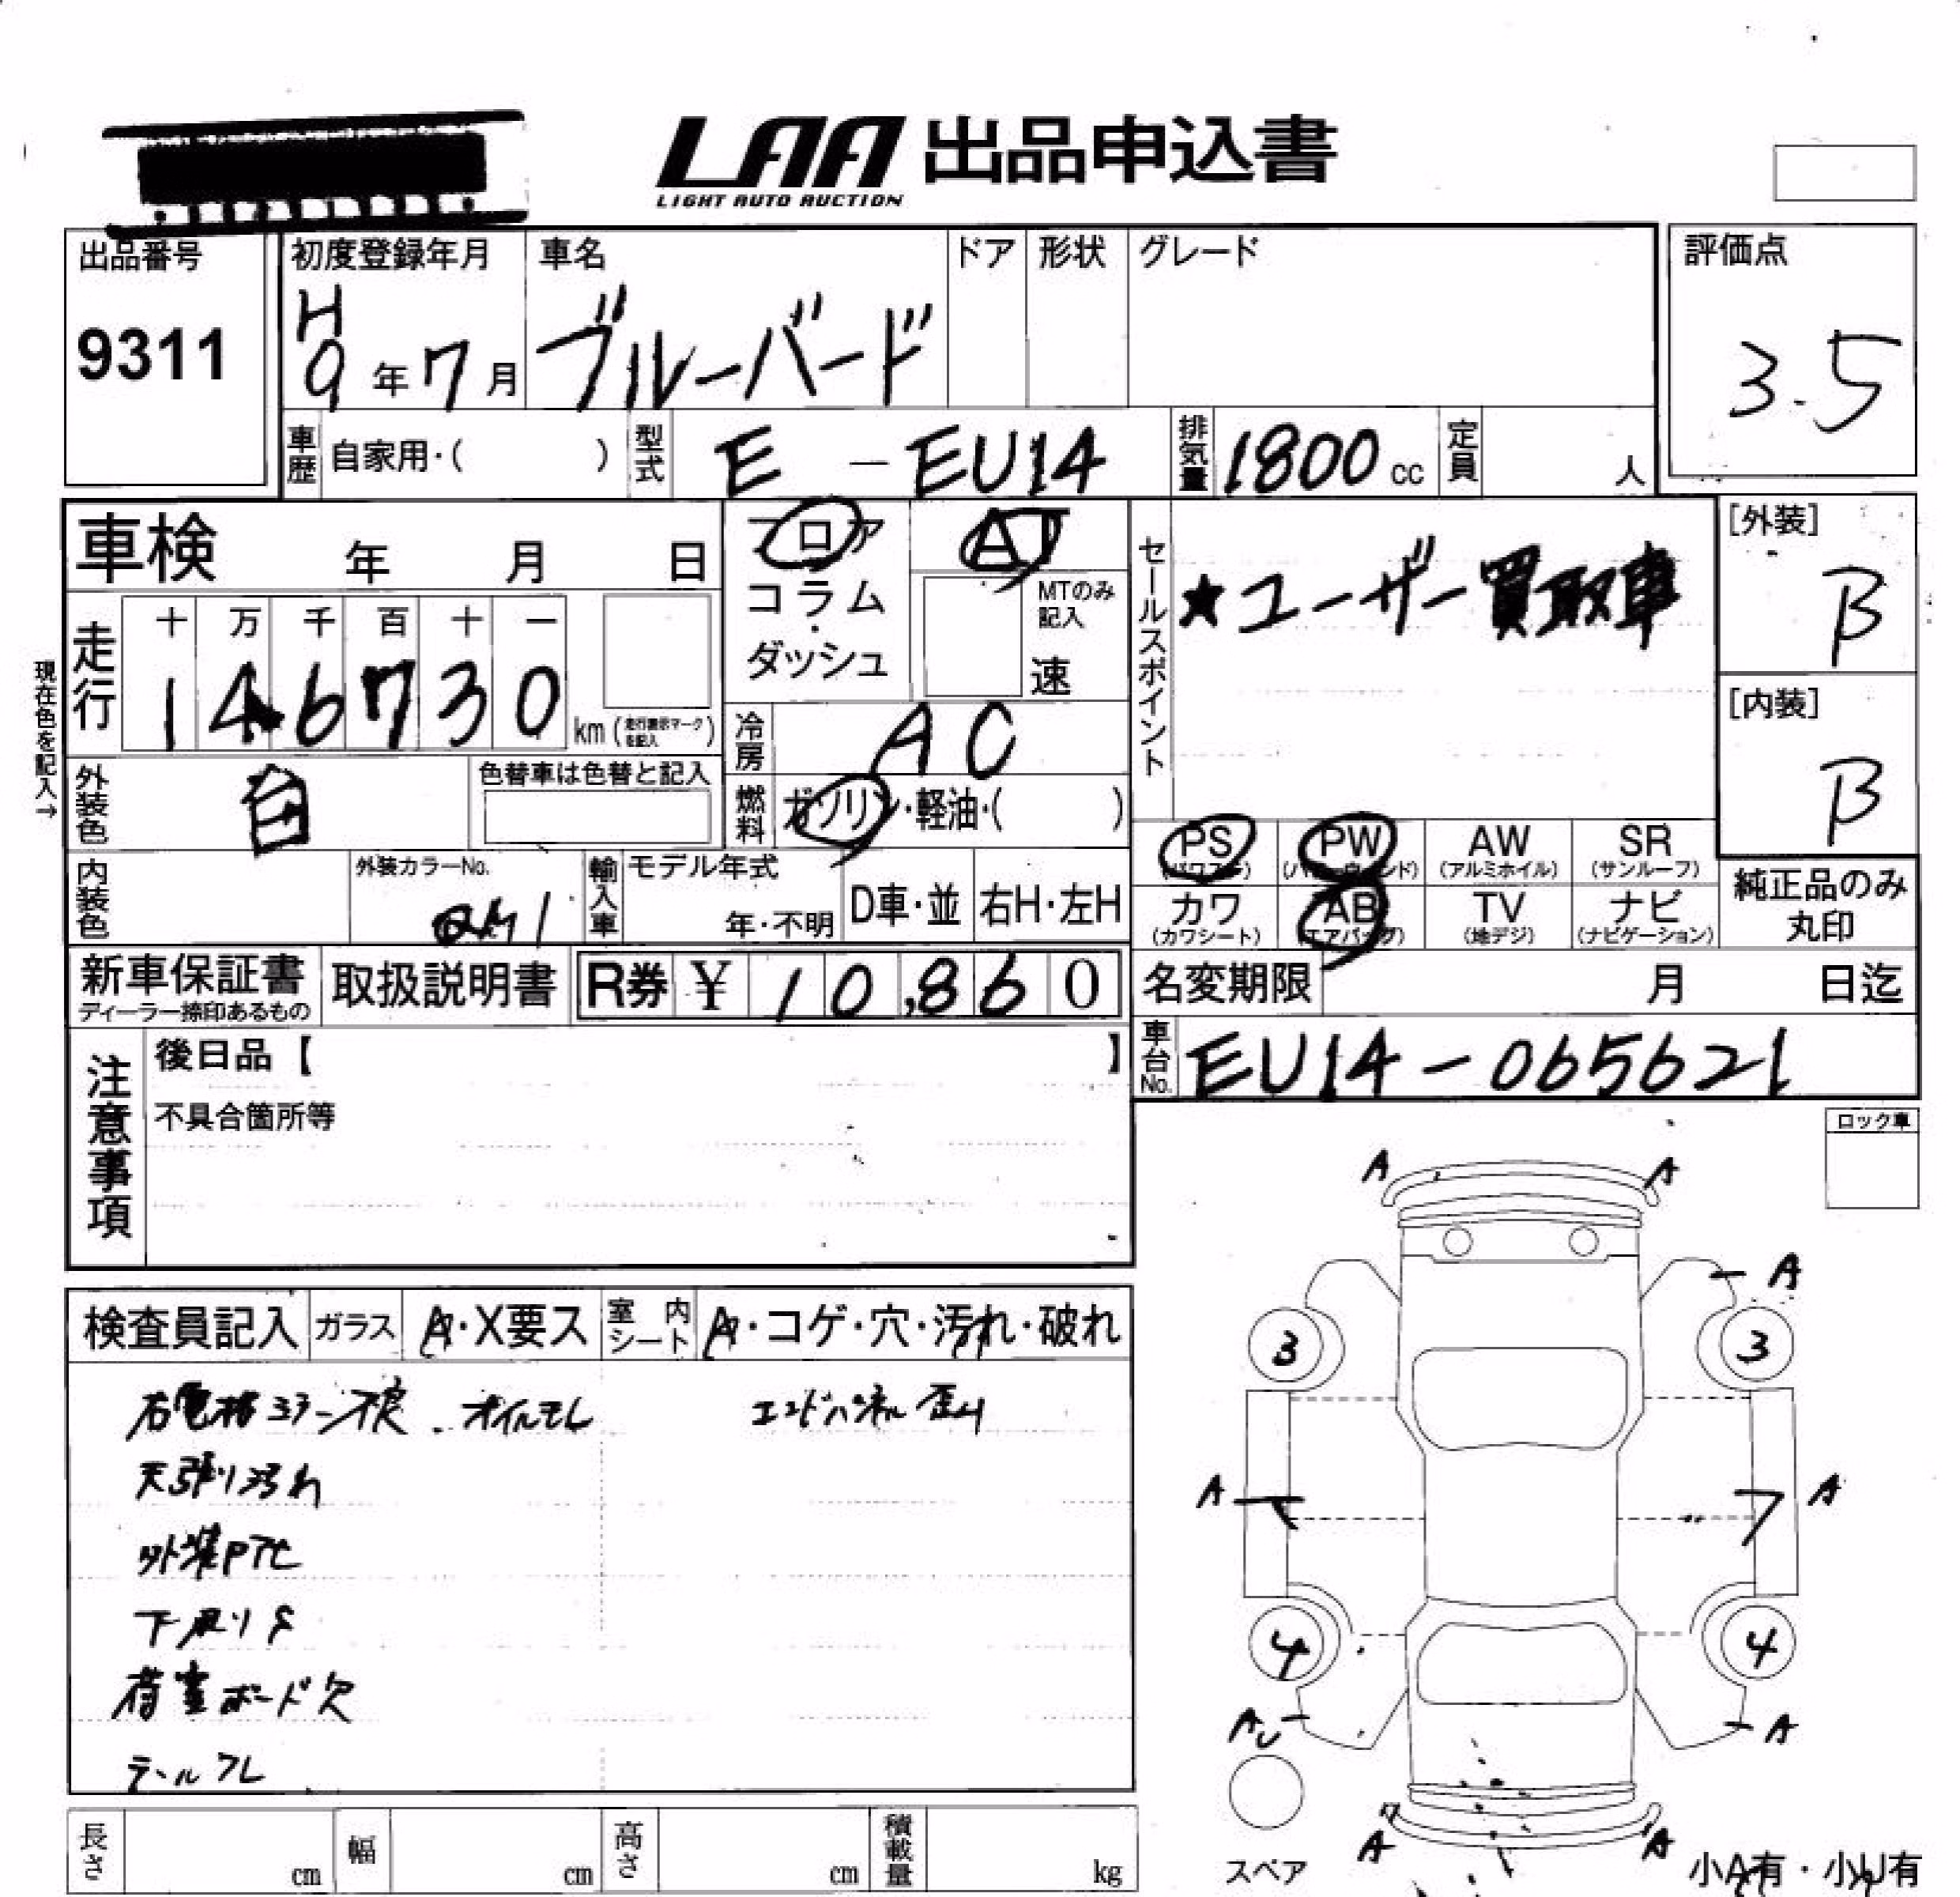 LAA 出品申込書
LIGHT AUTO AUCTION
出品番号
9311
初度登録年月
H
9 年 7 月
車名
ブルーバード
ドア
形状
グレード
評価点
3.5
車歴
自家用・( )
型式
E - EU14
排気量
1800 cc
定員
人
車検 年 月 日
走行
十 万 千 百 十 一
1 4 6 7 3 0 km (走行表示マークを記入)
現在色を記入→
外装色
白
色替車は色替と記入
内装色
外装カラーNo.
QM1
輸入車
モデル年式
年・不明
D車・並
右H・左H
フロア
コラム
・
ダッシュ
AT
MTのみ
記入
速
冷房
AC
燃料
ガソリン・軽油・( )
セールスポイント
★ユーザー買取車
[外装]
B
[内装]
B
PS
(パワステ)
PW
(パワーウィンド)
AW
(アルミホイル)
SR
(サンルーフ)
カワ
(カワシート)
AB
(エアバッグ)
TV
(地デジ)
ナビ
(ナビゲーション)
純正品のみ
丸印
新車保証書
ディーラー捺印あるもの
取扱説明書
R券 ¥ 10,860
名変期限 月 日迄
車台No.
EU14-065621
注意事項
後日品【 】
不具合箇所等
ロック車
検査員記入
ガラス
A・X要ス
室内シート
A・コゲ・穴・汚れ・破れ
右電格ミラー不良 . オイルモレ
エンドパネル歪ミ
天張り汚れ
外装Pアセ
下廻りS
荷室ボード欠
テールワレ
A
A
A
3
3
A
A
4
4
AU
A
ワ
A
A
スペア
小A有・小U有
長さ cm
幅 cm
高さ cm
積載量 kg